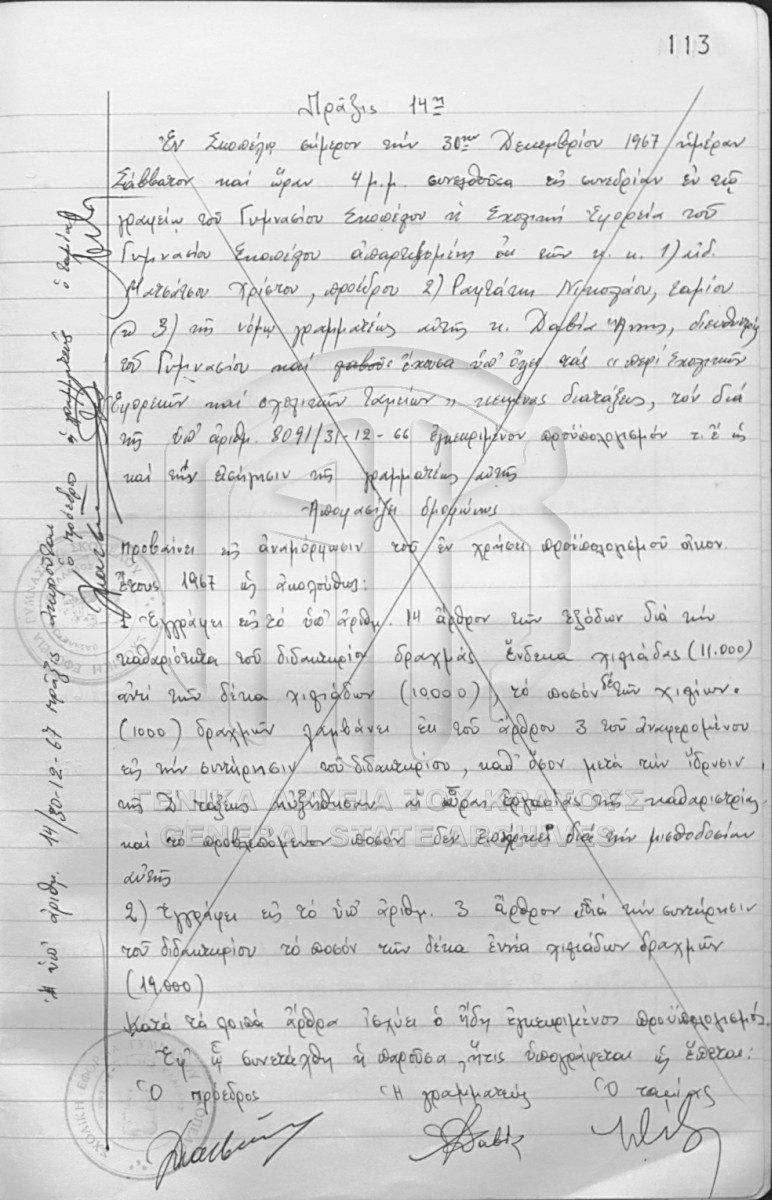 113
Πρᾶξις 14η
Ἐν Σκοπέλῳ σήμερον τήν 30ην Δεκεμβρίου 1967 ἡμέραν
Σάββατον καί ὥραν 4 μ.μ. συνελθοῦσα εἰς συνεδρίαν ἐν τῷ
γραφείῳ τοῦ Γυμνασίου Σκοπέλου ἡ Σχολική Ἐφορεία τοῦ
Γυμνασίου Σκοπέλου ἀπαρτιζομένη ἐκ τῶν κ. κ. 1) αἰδ.
Ματσάτσου Χρίστου, προέδρου 2) Ραφτάκη Νικολάου, ταμίου
3) τῆς νόμῳ γραμματέως αὐτῆς κ. Δαβία Ἄννης, διευθυντρίας
τοῦ Γυμνασίου καί ἔχουσα ὑπ' ὄψει τάς « περί Σχολικῶν
Ἐφορειῶν καί σχολικῶν Ταμείων » κειμένας διατάξεις, τόν διά
τῆς ὑπ' ἀριθμ. 8091/31-12-66 ἐγκεκριμένον προϋπολογισμόν τ. ἔ ὡς
καί τήν εἰσήγησιν τῆς γραμματέως αὐτῆς
Ἀποφασίζει ὁμοφώνως
Προβαίνει εἰς ἀναμόρφωσιν τοῦ ἐν χρήσει προϋπολογισμοῦ οἰκον.
ἔτους 1967 ὡς ἀκολούθως:
1 Ἐγγράφει εἰς τό ὑπ' ἀριθμ. 14 ἄρθρον τῶν ἐξόδων διά τήν
καθαριότητα τοῦ διδακτηρίου δραχμάς ἕνδεκα χιλιάδας (11.000)
ἀντί τῶν δέκα χιλιάδων (10.000), τό ποσόν δέ τῶν χιλίων
(1000) δραχμῶν λαμβάνει ἐκ τοῦ ἄρθρου 3 τοῦ ἀναφερομένου
εἰς τήν συντήρησιν τοῦ διδακτηρίου, καθ' ὅσον μετά τήν ἵδρυσιν
τῆς Δ τάξεως ηὐξήθησαν αἱ ὧραι ἐργασίας τῆς καθαριστρίας
καί τό προβλεπόμενον ποσόν δέν ἐπαρκεῖ διά τήν μισθοδοσίαν
αὐτῆς
2) Ἐγγράφει εἰς τό ὑπ' ἀριθμ. 3 ἄρθρον διά τήν συντήρησιν
τοῦ διδακτηρίου τό ποσόν τῶν δέκα ἐννέα χιλιάδων δραχμῶν
(19.000)
Κατά τά λοιπά ἄρθρα ἰσχύει ὁ ἤδη ἐγκεκριμένος προϋπολογισμός.
Ἐφ' ᾧ συνετάχθη ἡ παροῦσα, ἥτις ὑπογράφεται ὡς ἕπεται:
Ὁ πρόεδρος Ἡ γραμματεύς Ὁ ταμίας
Ἡ ὑπ' ἀριθμ. 14/30-12-67 πρᾶξις ἀκυροῦται
Ὁ πρόεδρος Ἡ γραμματεύς Ὁ ταμίας
ΓΕΝΙΚΑ ΑΡΧΕΙΑ ΤΟΥ ΚΡΑΤΟΥΣ
GENERAL STATE ARCHIVES